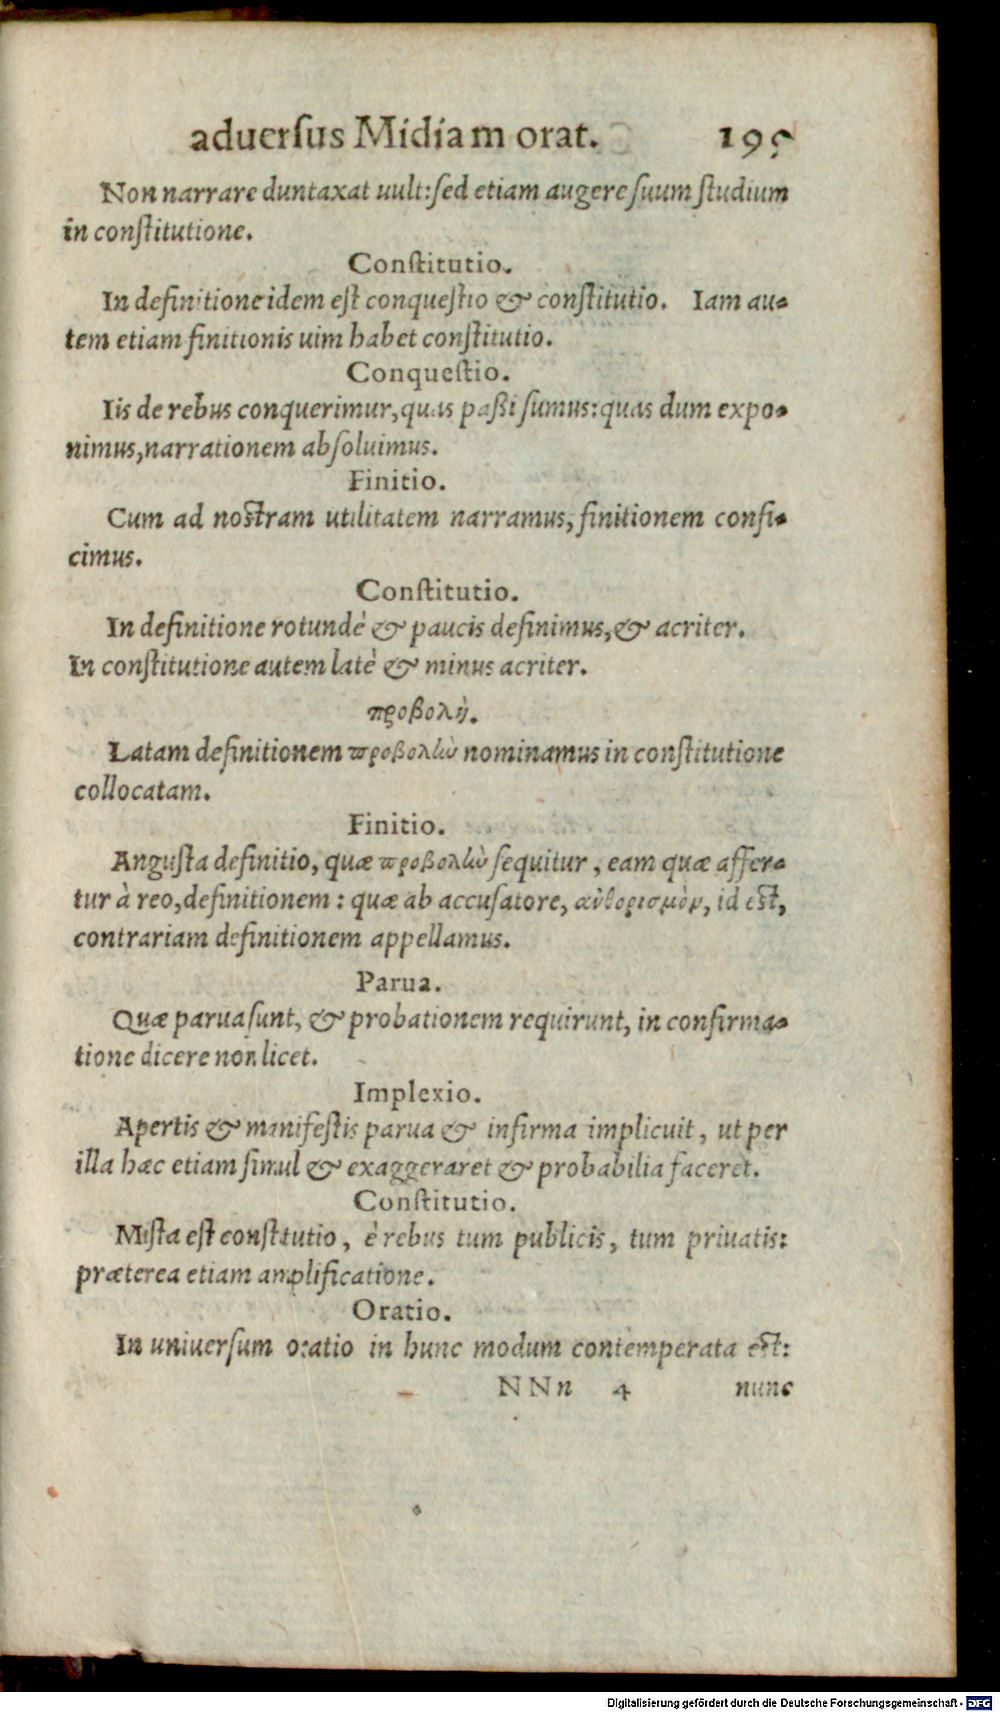 aduersus Midiam orat. 195
Non narrare duntaxat uult: sed etiam augere suum studium
in constitutione.
Constitutio.
In definitione idem est conquestio & constitutio. Iam au-
tem etiam finitionis uim habet constitutio.
Conquestio.
Iis de rebus conquerimur, quas paßi sumus: quas dum expo-
nimus, narrationem absoluimus.
Finitio.
Cum ad nostram utilitatem narramus, finitionem confi-
cimus.
Constitutio.
In definitione rotundè & paucis definimus, & acriter.
In constitutione autem latè & minus acriter.
προβολὴ.
Latam definitionem προβολὼ nominamus in constitutione
collocatam.
Finitio.
Angusta definitio, quæ προβολὼ sequitur, eam quæ affer-
tur à reo, definitionem: quæ ab accusatore, ἀνθορισμὸν, id est,
contrariam definitionem appellamus.
Parua.
Quæ parua sunt, & probationem requirunt, in confirma-
tione dicere non licet.
Implexio.
Apertis & manifestis parua & infirma implicuit, ut per
illa hæc etiam simul & exaggeraret & probabilia faceret.
Constitutio.
Mista est constitutio, è rebus tum publicis, tum priuatis:
præterea etiam amplificatione.
Oratio.
In uniuersum oratio in hunc modum contemperata est:
NNn 4 nunc
Digitalisierung gefördert durch die Deutsche Forschungsgemeinschaft - DFG